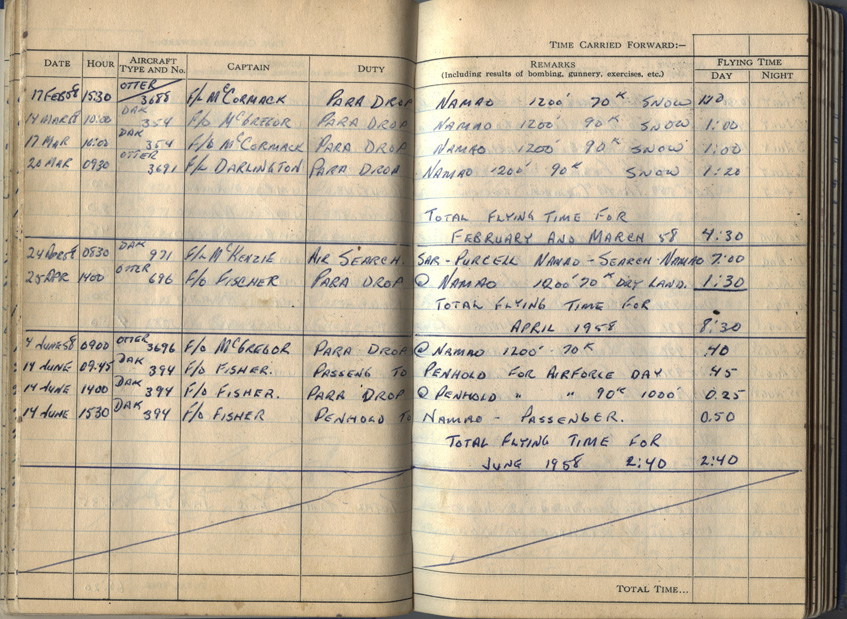 TIME CARRIED FORWARD:—
DATE HOUR AIRCRAFT TYPE AND No. CAPTAIN DUTY REMARKS (Including results of bombing, gunnery, exercises, etc.) FLYING TIME DAY NIGHT
17 FEB 58 1530 OTTER 3688 F/L McCORMACK PARA DROP NAMAO 1200' 70K SNOW
14 MAR 58 10:00 DAK 354 F/O McGREGOR PARA DROP NAMAO 1200' 90K SNOW 1:00
17 MAR 10:00 DAK 354 F/O McCORMACK PARA DROP NAMAO 1200' 90K SNOW 1:00
20 MAR 0930 OTTER 3691 F/L DARLINGTON PARA DROP NAMAO 1200' 90K SNOW 1:20
TOTAL FLYING TIME FOR
FEBRUARY AND MARCH 58 4:30
24 APR 58 0830 DAK 971 F/L McKENZIE AIR SEARCH. SAR-PURCELL NAMAO-SEARCH-NAMAO 7:00
25 APR 1400 OTTER 696 F/O FISCHER PARA DROP @ NAMAO 1200' 70K DRY LAND. 1:30
TOTAL FLYING TIME FOR
APRIL 1958 8:30
JUNE 58 0900 OTTER 3696 F/O McGREGOR PARA DROP @ NAMAO 1200' - 70K .40
14 JUNE 09.45 DAK 394 F/O FISHER. PASSENG TO PENHOLD FOR AIRFORCE DAY .45
14 JUNE 1400 DAK 394 F/O FISHER. PARA DROP @ PENHOLD " " 90K 1000' 0.25
14 JUNE 1530 DAK 394 F/O FISHER PENHOLD TO NAMAO - PASSENGER. 0.50
TOTAL FLYING TIME FOR
JUNE 1958 2:40 2:40
TOTAL TIME...